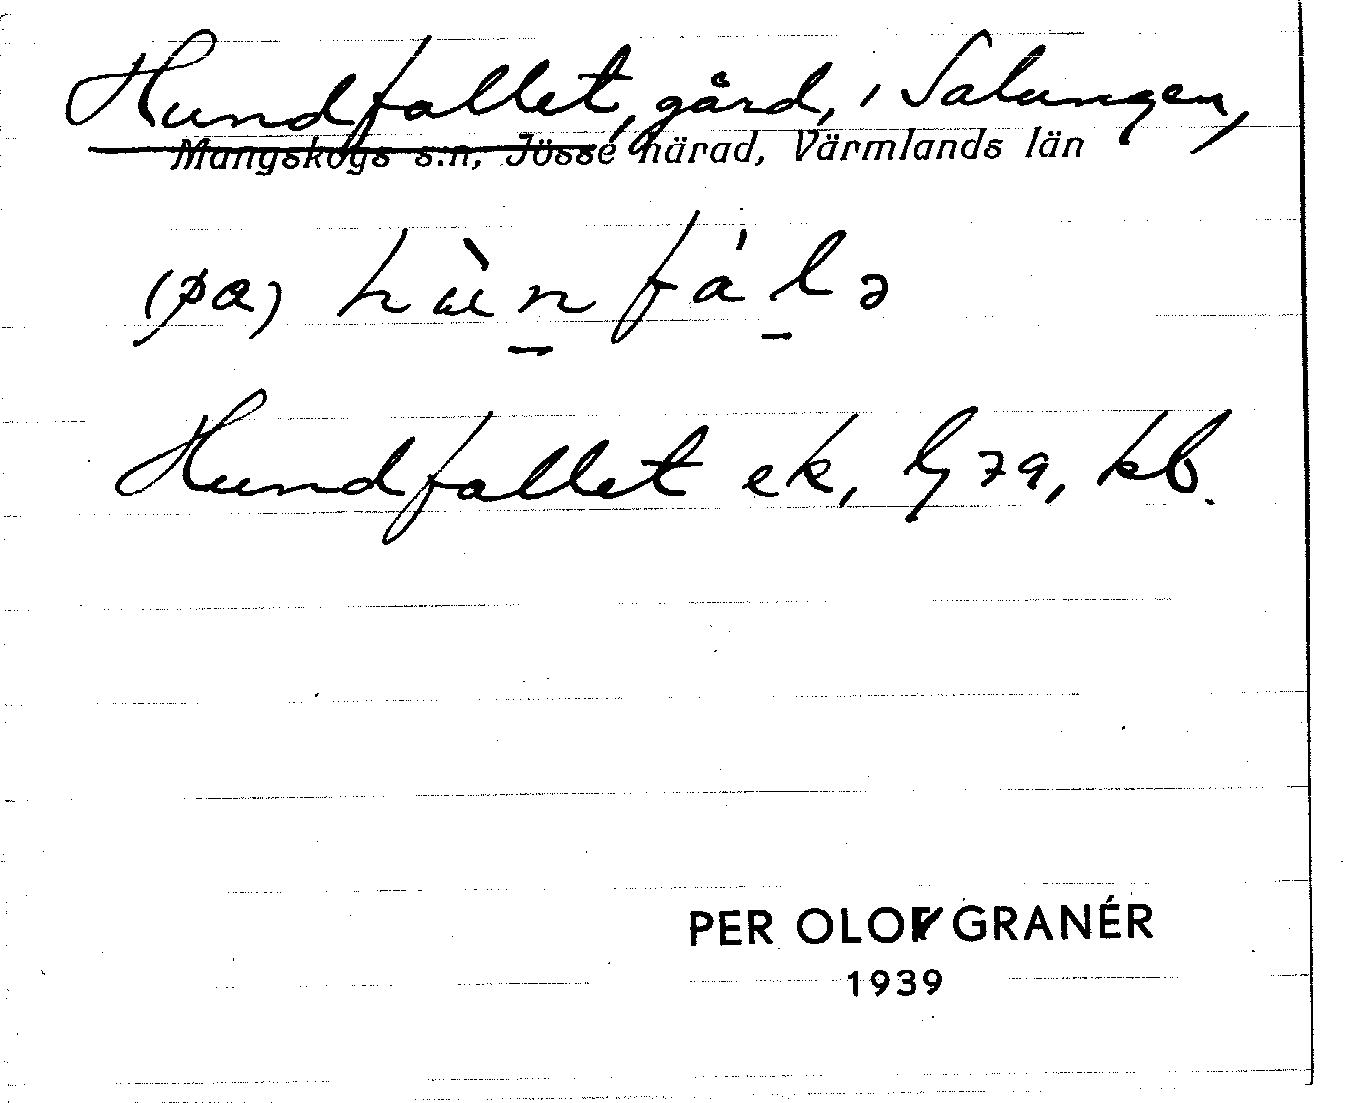 Hundfallet, gård, i Salungen,
Mangskogs s:n, Jösse härad, Värmlands län
(pa) hùn fá lə
Hundfallet ek, G79, kb.
PER OLOF GRANÉR
1939